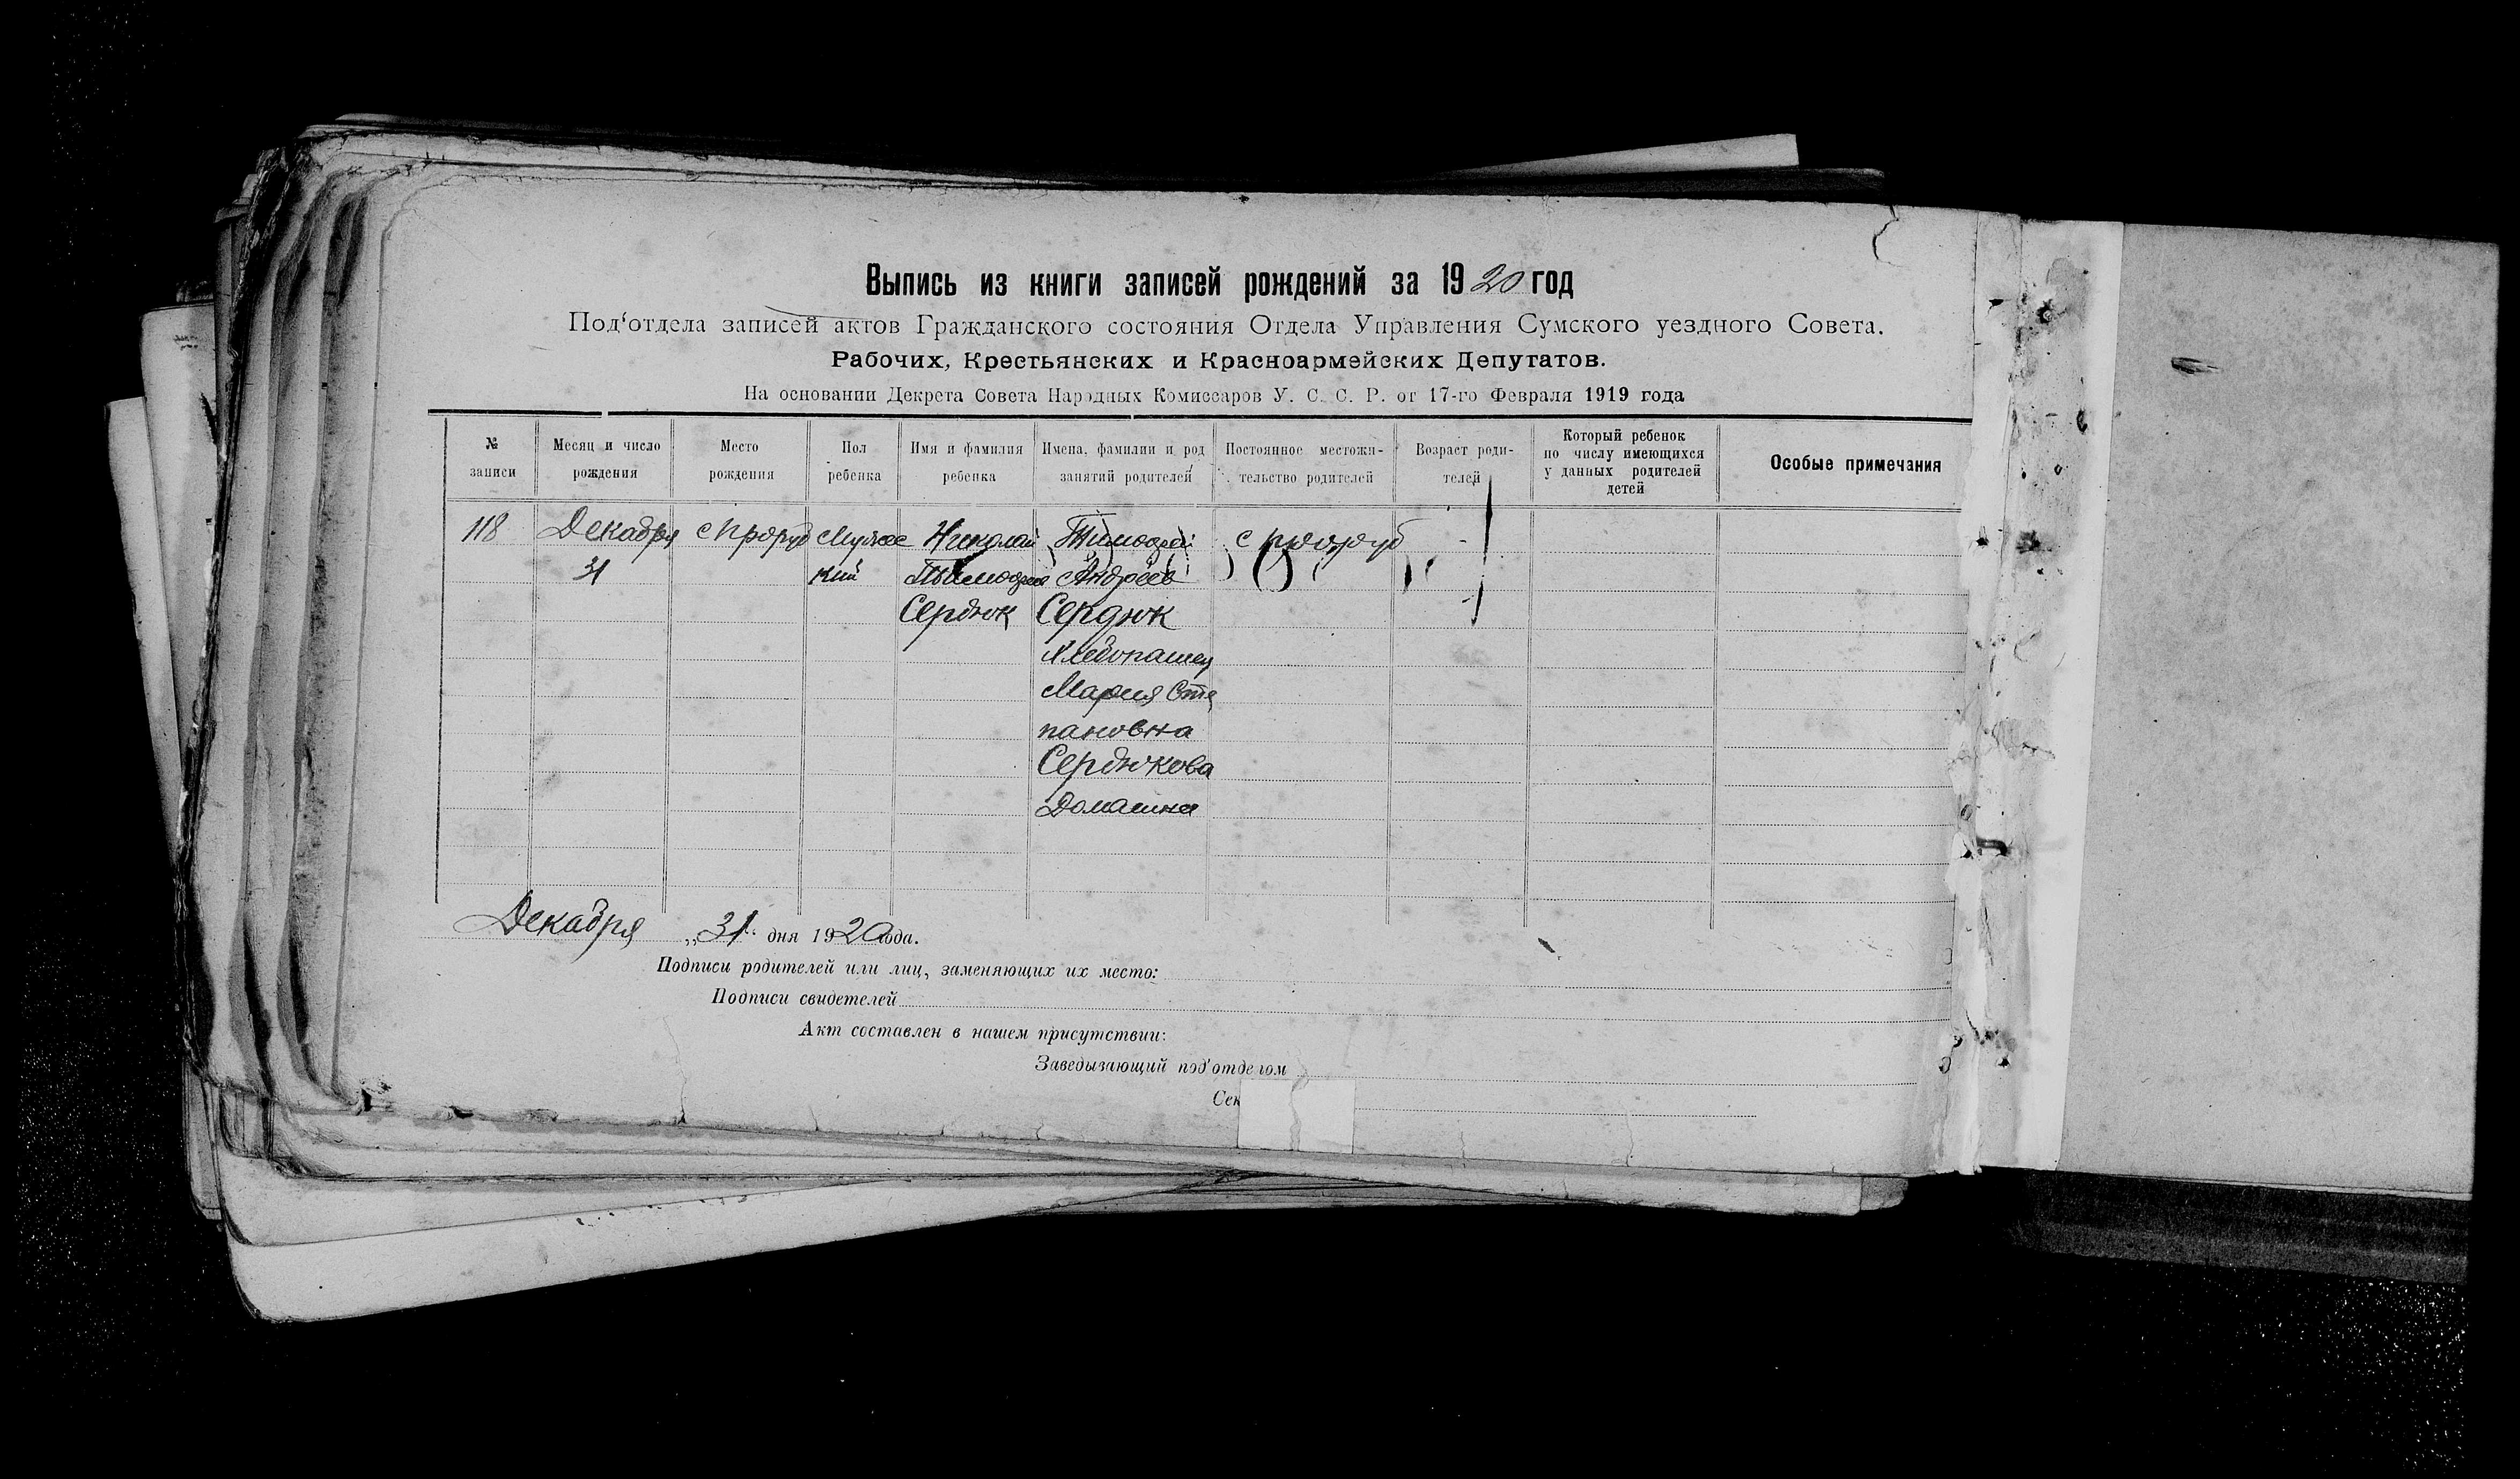 Выпись из книги записей рождений за 1920 год
Под‘отдела записей актов Гражданского состояния Отдела Управления Сумского уездного Совета.
Рабочих, Крестьянских и Красноармейских Депутатов.
На основании Декрета Совета Народных Комиссаров У. С. С. Р. от 17-го Февраля 1919 года
№ записи
Месяц и число рождения
Место рождения
Пол ребенка
Имя и фамилия ребенка
Имена, фамилии и род занятий родителей
Постоянное местожительство родителей
Возраст родителей
Который ребенок по числу имеющихся у данных родителей детей
Особые примечания
118 Декабря с Проруб Мужес Николай Тимофей с Проруб
31 кий Тимофеев Андреев
Сердюк Сердюк
Хлебопашец
Мария Сте
пановна
Сердюкова
Домашня
Декабря „31“ дня 1920 года.
Подписи родителей или лиц, заменяющих их место:
Подписи свидетелей
Акт составлен в нашем присутствии:
Заведывающий под‘отделом
Сек